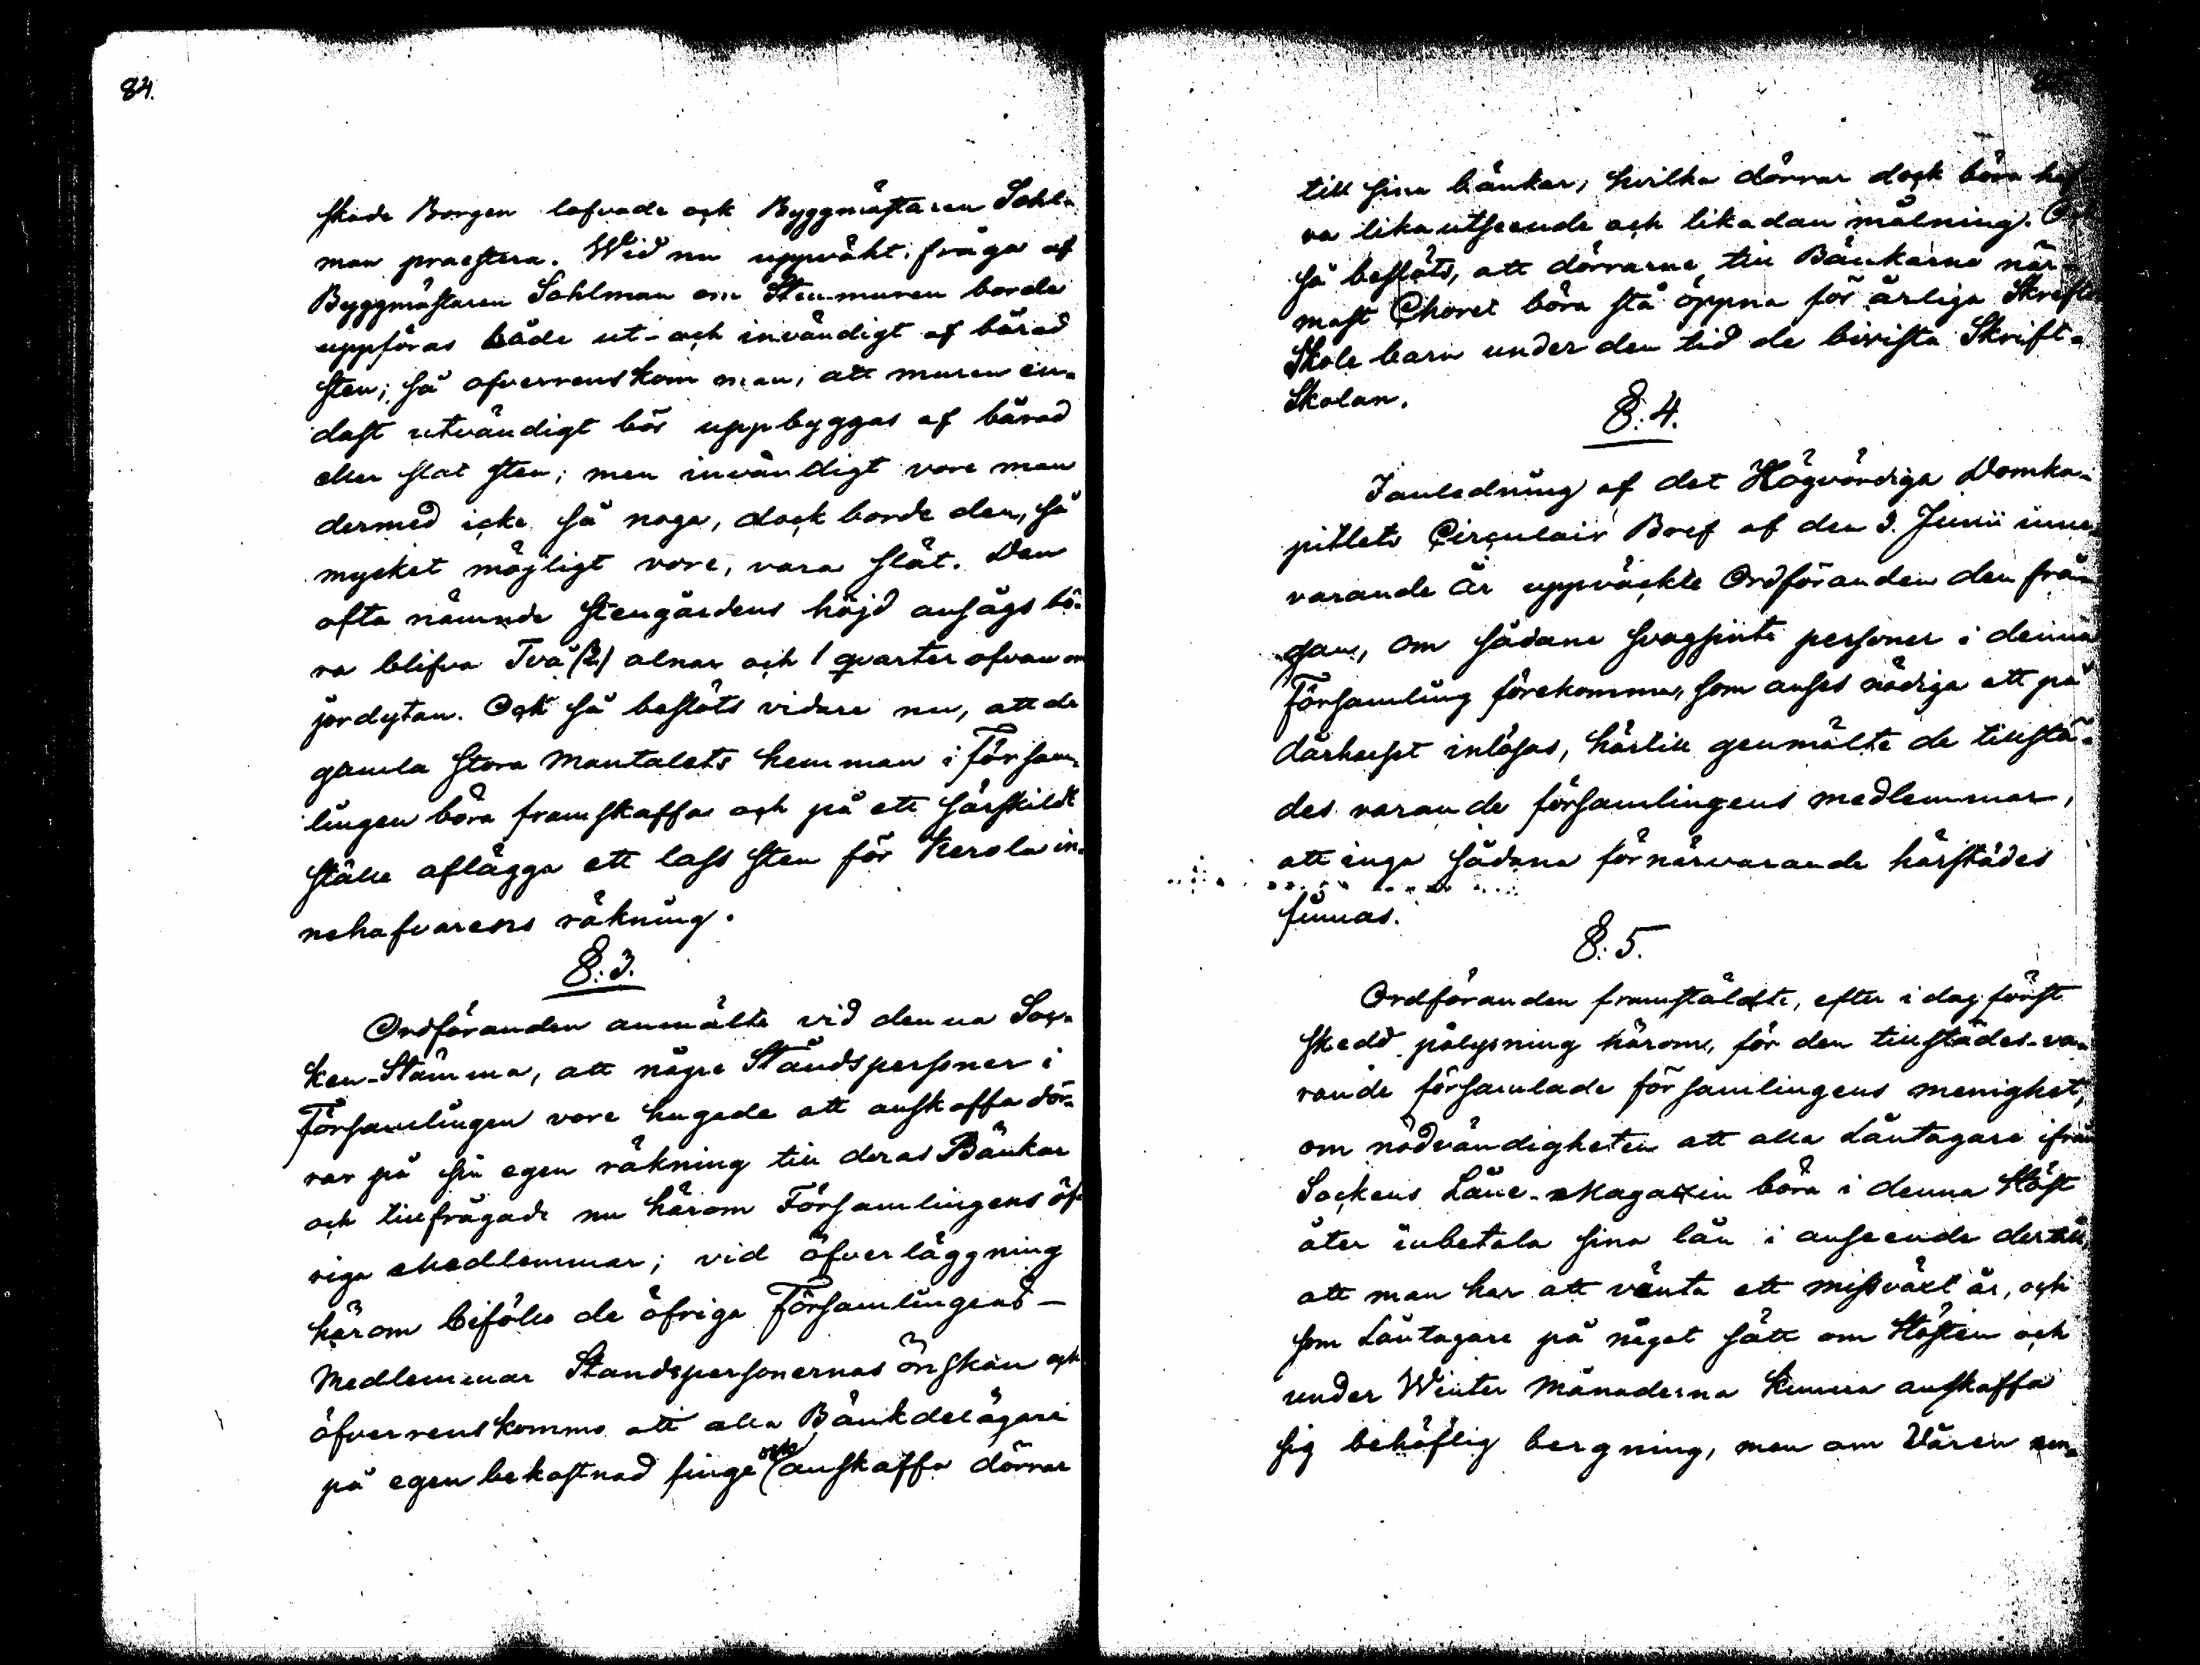 84.
skade Borgen lofvade ock Byggmästaren Sahl-
man praestera. Wid nu uppväkt fråga af
Byggmästaren Sahlman om Stenmuren borde
uppföras både ut- och invändigt af bårad
sten; så öfverrenskom man, att muren en-
dast utvändigt bör uppbyggas af bårad
eller slat sten; men invändigt vore man
dermed icke så noga, dock borde den, så
mycket möjligt vore, vara slät. Den
ofta nämnde stengårdens höjd ansågs bö-
ra blifva Två (2) alnar och 1 qvarter ofvan om
jordytan. Ock så beslöts vidare nu, att de
gamla stora Mantalets hemman i Försam-
lingen böra framskaffa och på ett särskildt
ställe aflägga ett lass sten för Kerola in-
nehafvarens räkning.
§. 3.
Ordföranden anmälte vid denna Soc-
ken-Stämma, att någre Ståndspersoner i
Församlingen vore hugade att anskaffa dör-
rar på sin egen räkning till deras Bänkar
och tillfrågade nu härom Församlingens öf-
riga Medlemmar; vid öfverläggning
härom biföllo de öfriga Församlingens -
Medlemmar Standspersonernas önskan och
öfverrenskommo att alla Bänkdelägare
på egen bekostnad finge ock anskaffa dörrar
till sina bänkar, hvilka dörrar dock böra haf
va lika utseende och likadan målning. Ock
så beslöts, att dörrarne till Bänkarne när-
mast Choret böra stå öppna för årliga Skrift
Skole barn under den tid de bivista Skrift-
Skolan.
§. 4.
I anledning af det Högvördiga Domka-
pitlets Circulair Bref af den 3. Junii inne-
varande år uppväckte Ordföranden den frå-
gan, om sådane svagsinte personer i denna
Församling förekomma, som anses nödiga att på
dårhuset inlösas, härtill genmälte de tillstä-
des varande församlingens medlemmar,
att inga sådana förnärvarande härstädes
finnas.
§. 5.
Ordföranden framstäldte, efter i dag först
skedd pålysning härom, för den tillstädes-va-
rande församlade församlingens menighet,
om nödvändigheten att alla Låntagare ifrån
Sockens Låne-Magazin böra i denna Höst
åter inbetala sina lån i anseende dertill,
att man har att vänta ett missväxt år, och
som Låntagare på något sätt om Hösten och
under Winter månaderna kunna anskaffa
sig behöflig bergning, men om Våren